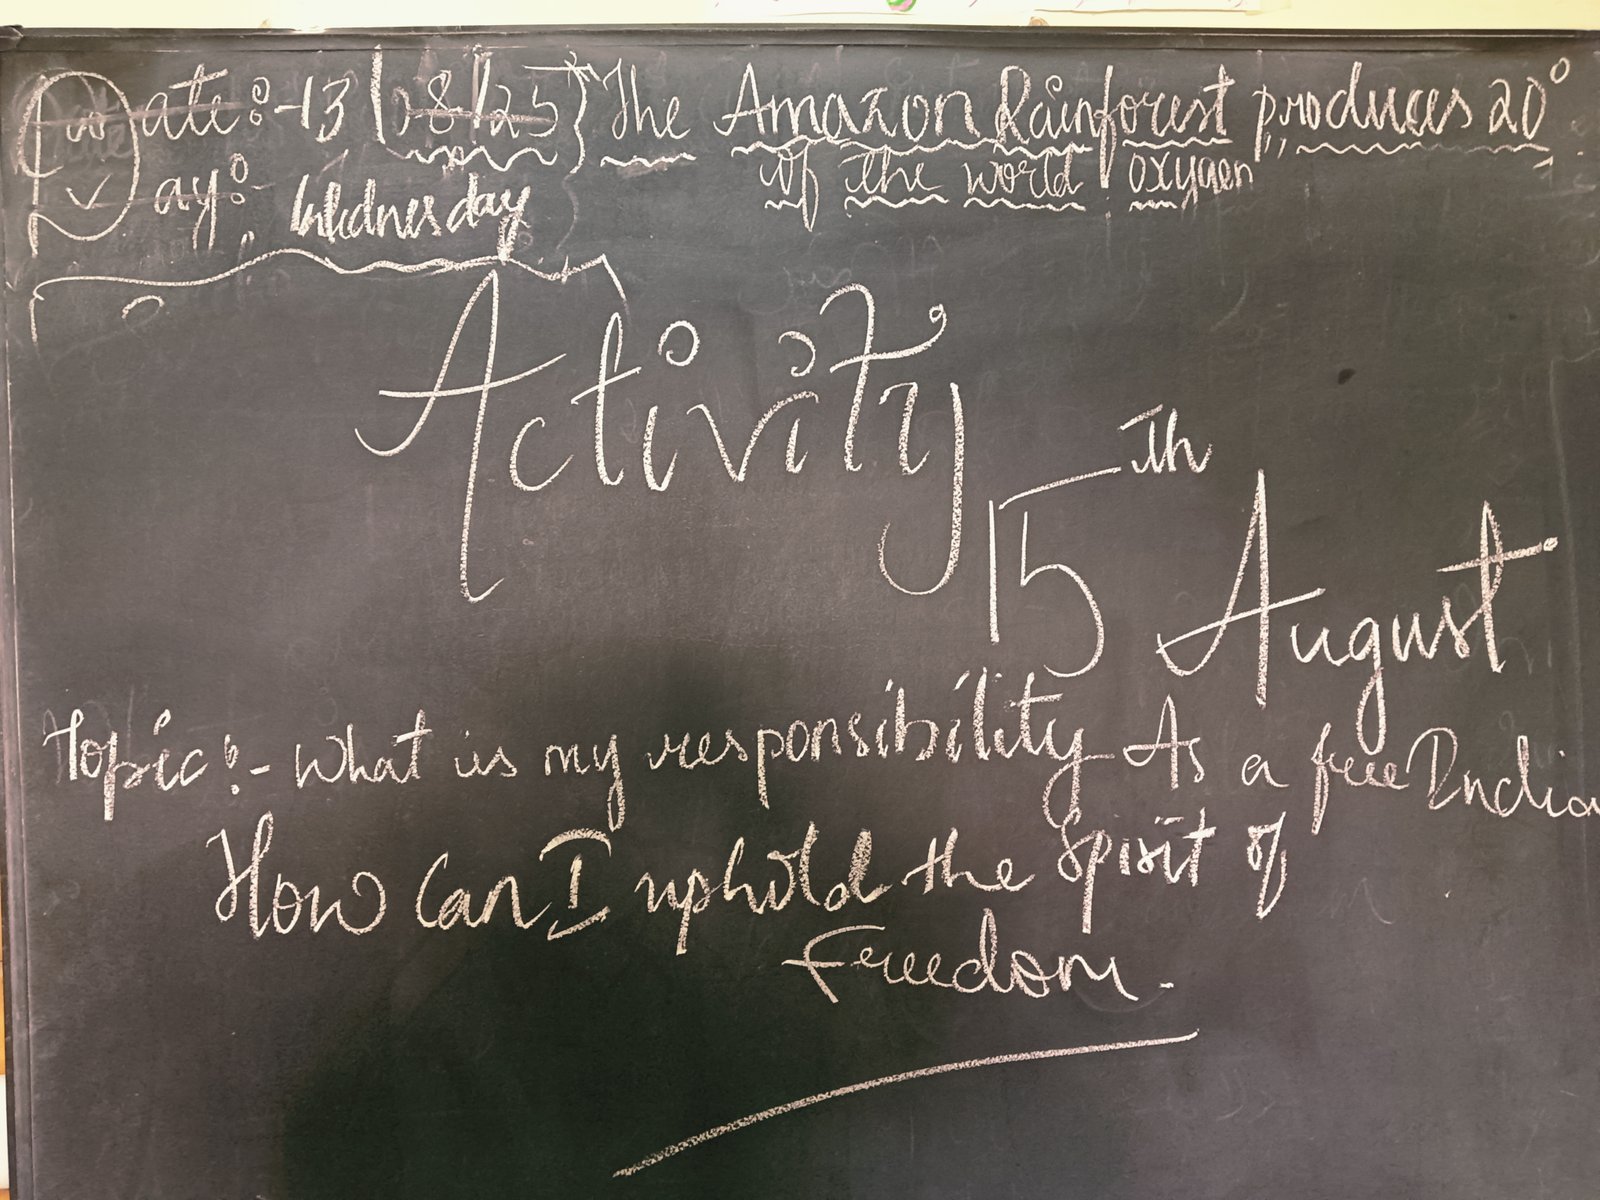 Date:-13/08/25} The Amazon Rainforest produces 20°
of the world oxygen
Day: Wednesday
Activity
15th August
Topic:- What is my responsibility As a free India
How Can I uphold the spirit of
Freedom.